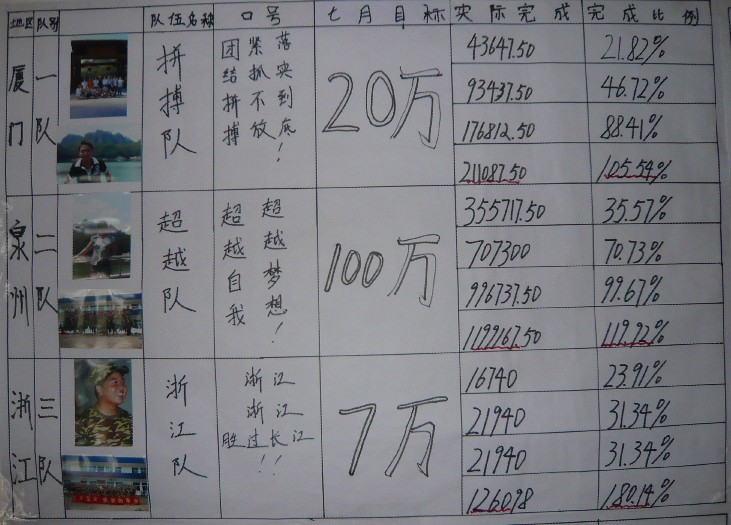 地区 队别 队伍名称 口号 七月目标 实际完成 完成比例
厦门
一队
拼搏队
团结拼搏
紧抓不放
落实到底!
20万
43647.50 21.82%
93437.50 46.72%
176812.50 88.41%
211087.50 105.54%
泉州
二队
超越队
超越自我
超越梦想!
100万
355717.50 35.57%
707300 70.73%
996737.50 99.67%
1199167.50 119.92%
浙江
三队
浙江队
浙江
浙江
胜过长江
!!
7万
16740 23.91%
21940 31.34%
21940 31.34%
126098 180.14%